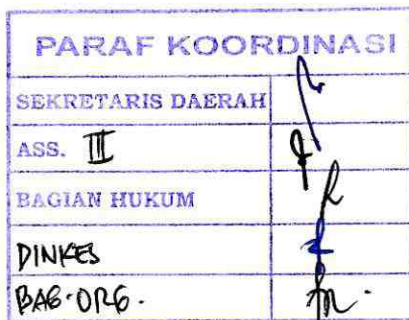 PARAF KOORDINASI
SEKRETARIS DAERAH
ASS. III
BAGIAN HUKUM
DINKES
BAG. ORG.